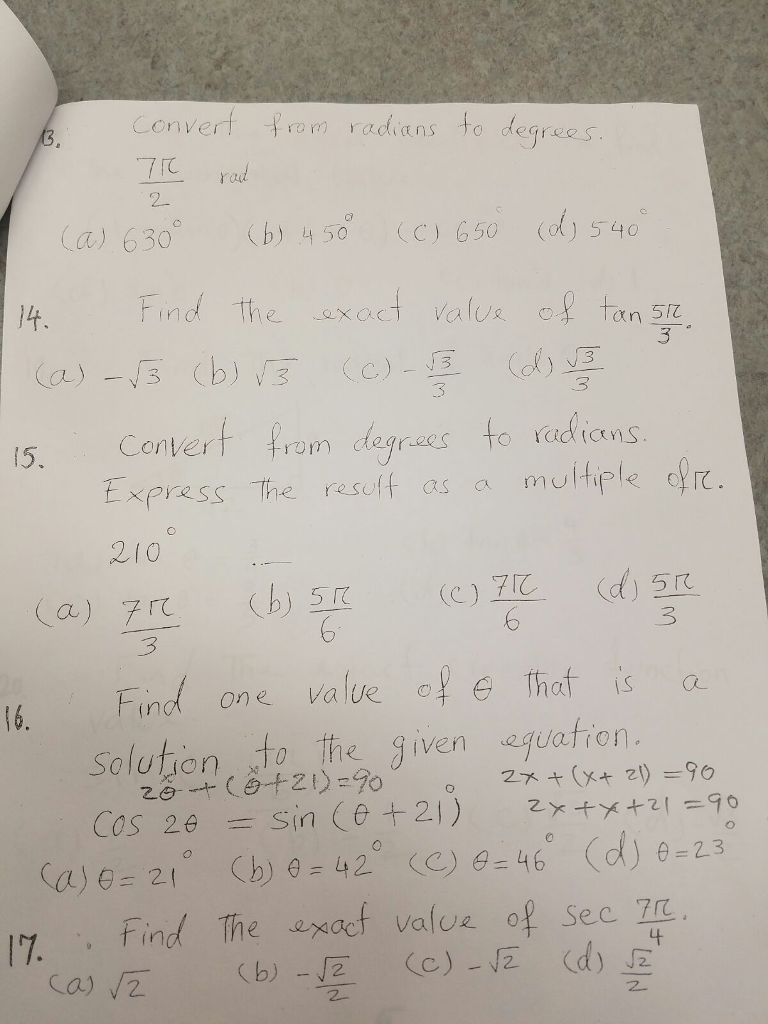 13. Convert from radians to degrees.
7π/2 rad
(a) 630° (b) 450° (c) 650° (d) 540°
14. Find the exact value of tan 5π/3.
(a) -√3 (b) √3 (c) -√3/3 (d) √3/3
15. Convert from degrees to radians.
Express the result as a multiple of π.
210°
(a) 7π/3 (b) 5π/6 (c) 7π/6 (d) 5π/3
16. Find one value of θ that is a
solution to the given equation.
2θ + (θ + 21) = 90 2x + (x + 21) = 90
x x
cos 2θ = sin (θ + 21°) 2x + x + 21 = 90
(a) θ = 21° (b) θ = 42° (c) θ = 46° (d) θ = 23°
17. Find the exact value of sec 7π/4.
(a) √2 (b) -√2/2 (c) -√2 (d) √2/2